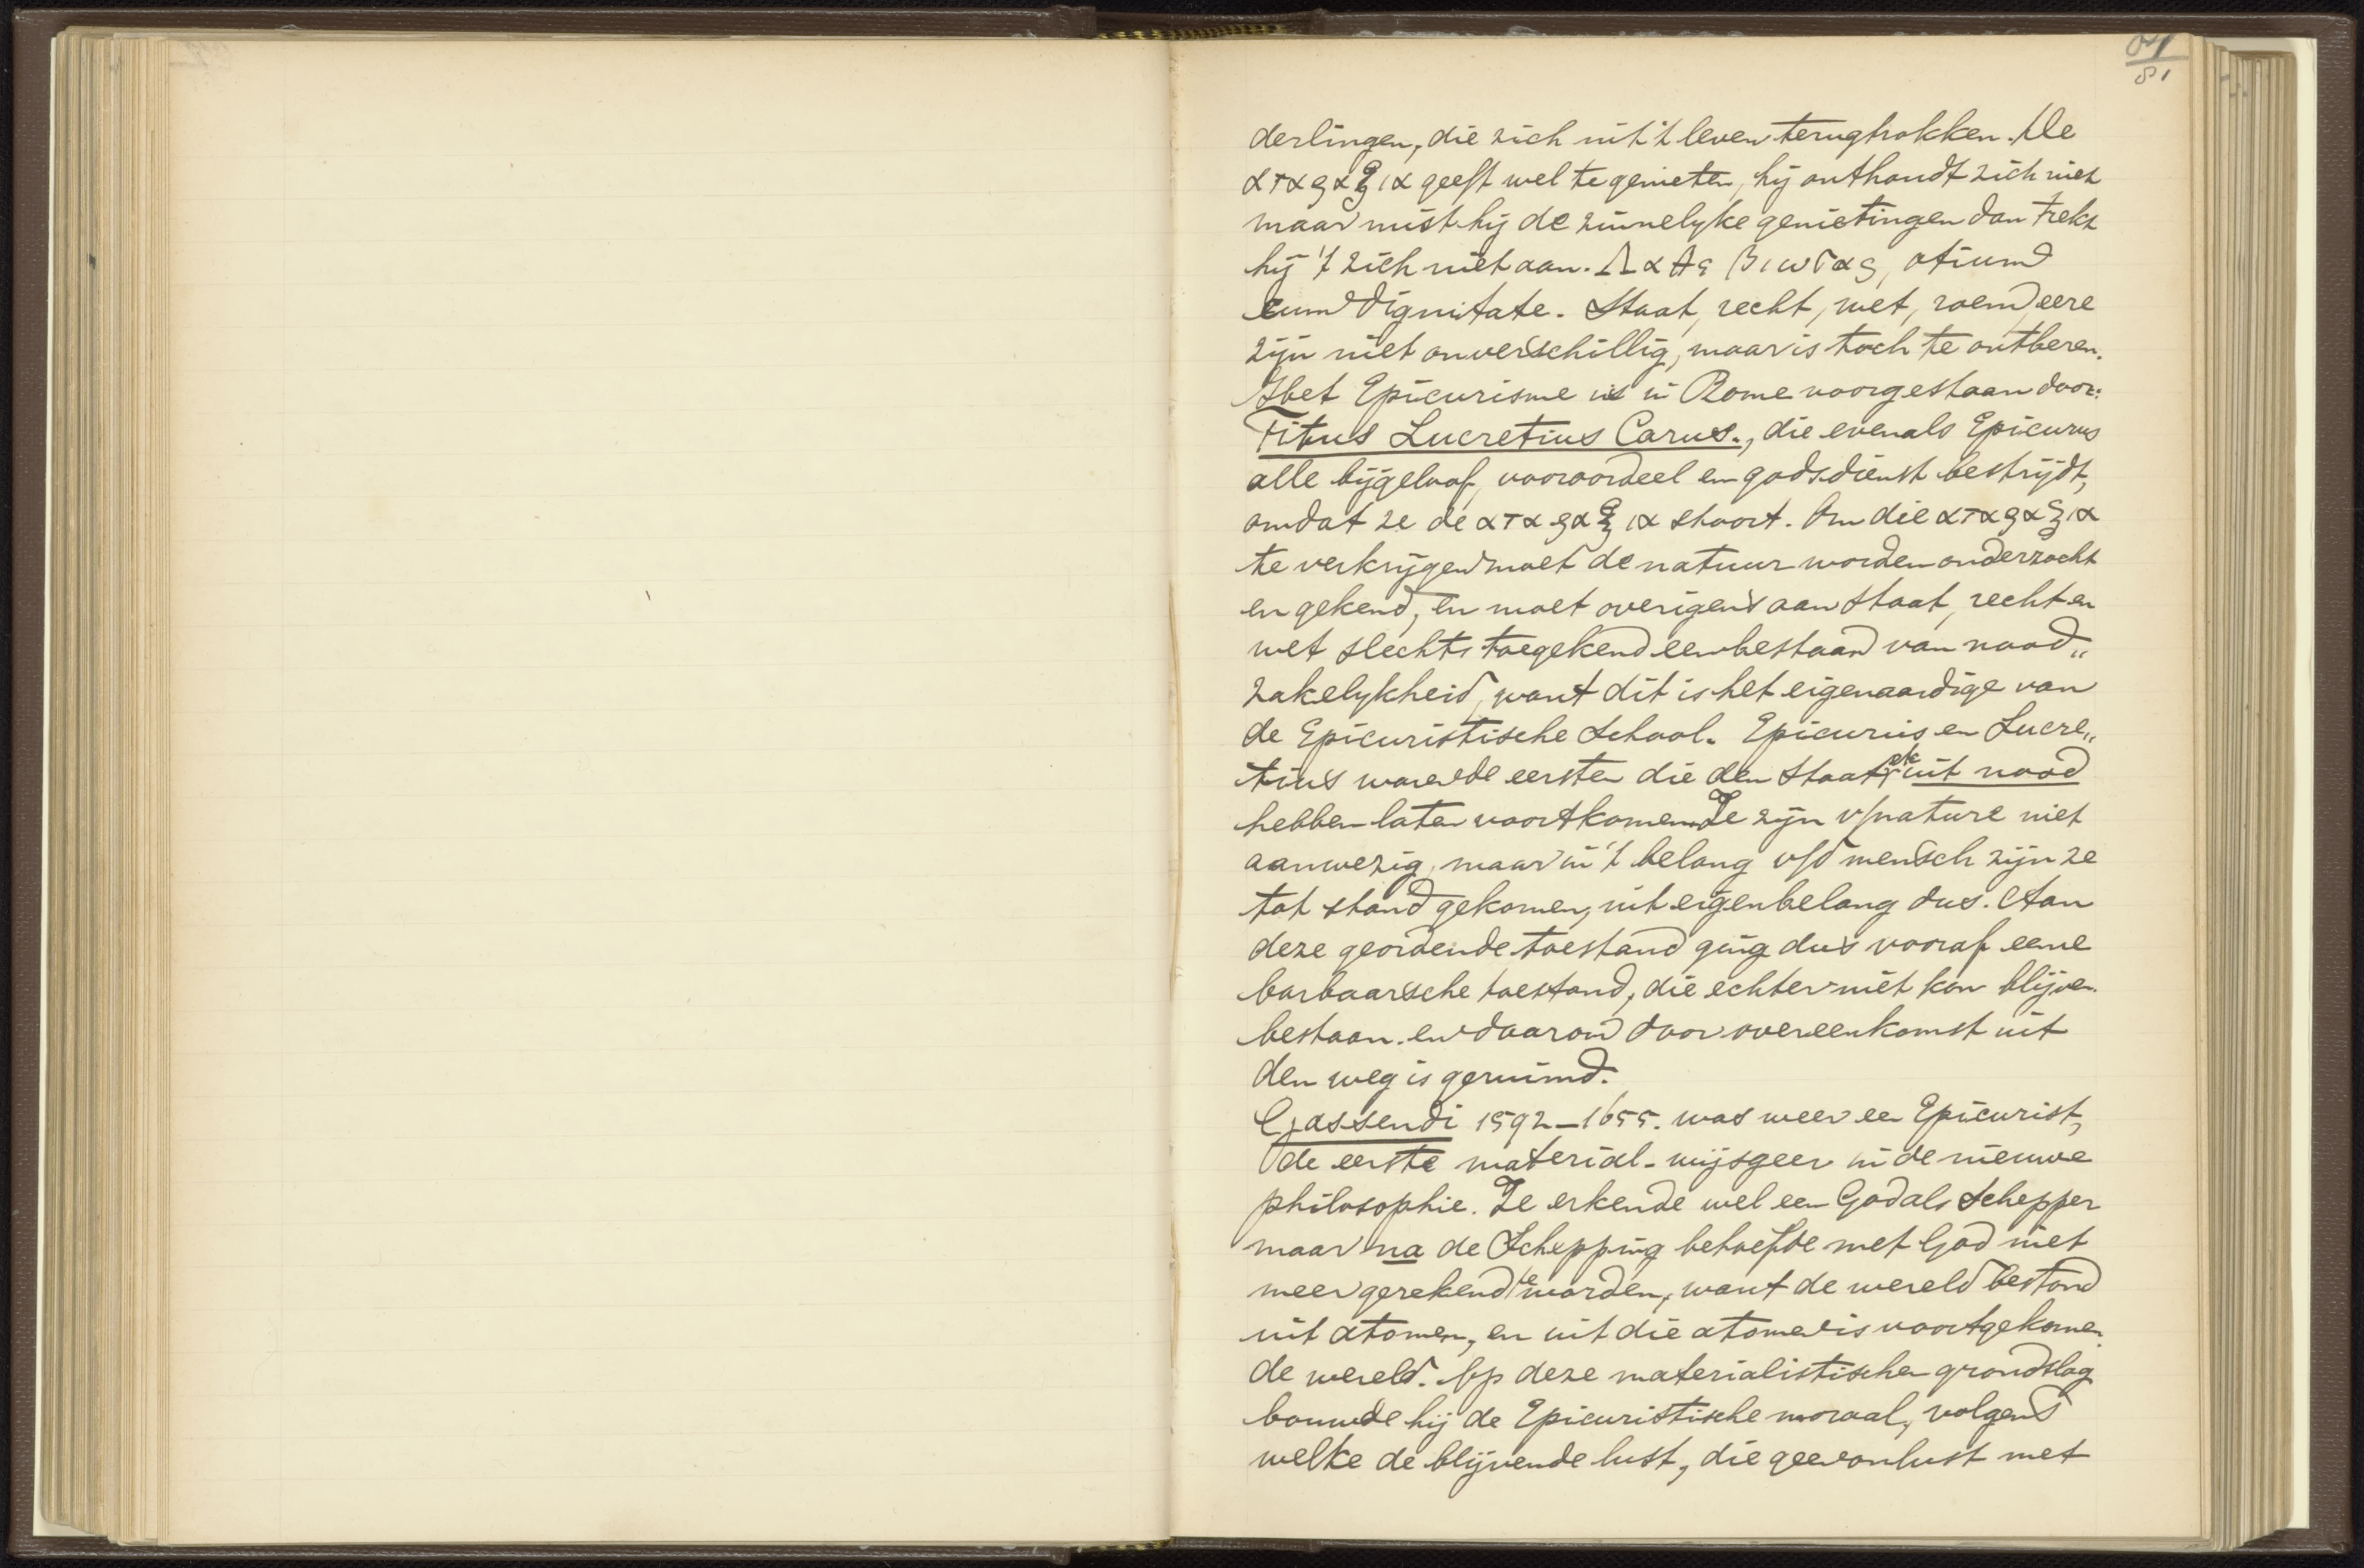 81
derlingen, die zich uit 't leven terugtrokken. De
αταραξια geeft wel te genieten, hij onthoudt zich niet
maar mist hij de zinnelyke genietingen dan trekt
hij 't zich niet aan. Λαθε βιωσας, otium
cum dignitate. Staat, recht, wet, roem, eere
zijn niet onverschillig, maar is toch te ontberen.
Het Epicurisme is in Rome voorgestaan door:
Titus Lucretius Carus., die evenals Epicurus
alle bijgeloof, vooroordeel en godsdienst bestrijdt,
omdat ze de αταραξια stoort. Om die αταραξια
te verkrijgen moet de natuur worden onderzocht
en gekend, en moet overigens aan staat, recht en
wet slechts toegekend een bestaan van nood„
zakelykheid, want dit is het eigenaardige van
de Epicuristische School. Epicurus en Lucre„
tius waren de eersten die den Staat etc uit nood
hebben laten voortkomen. Ze zijn v/nature niet
aanwezig, maar in 't belang v/d mensch zijn ze
tot stand gekomen, uit eigenbelang dus. Aan
deze geordende toestand ging dus vooraf eene
barbaarsche toestand, die echter niet kon blijven
bestaan. en daarom door overeenkomst uit
den weg is geruimd.
Gassendi 1592–1655. was weer een Epicurist,
de eerste material-wijsgeer in de nieuwe
philosophie. Ze erkende wel een God als Schepper
maar na de Schepping behoefde met God niet
meer gerekend te worden, want de wereld bestond
uit atomen, en uit die atomen is voortgekomen
de wereld. Op deze materialistischen grondslag
bouwde hij de Epicuristische moraal, volgens
welke de blijvende lust, die geen onlust met